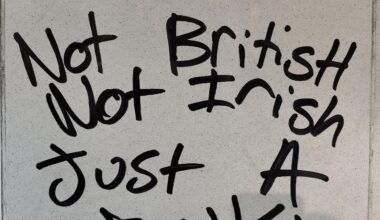 Not British
Not Irish
Just A